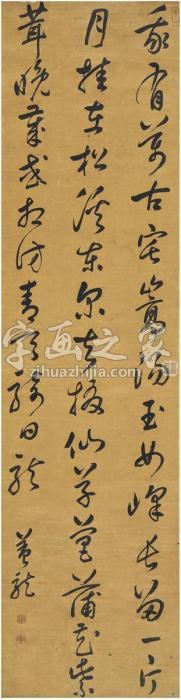 我有萬古宅嵩陽玉女峰長留一片
月挂在東松溪東尔去掇仙草菖蒲花紫
茸晚歲或相訪青天騎白龍
字画之家
www.zihuazhijia.com